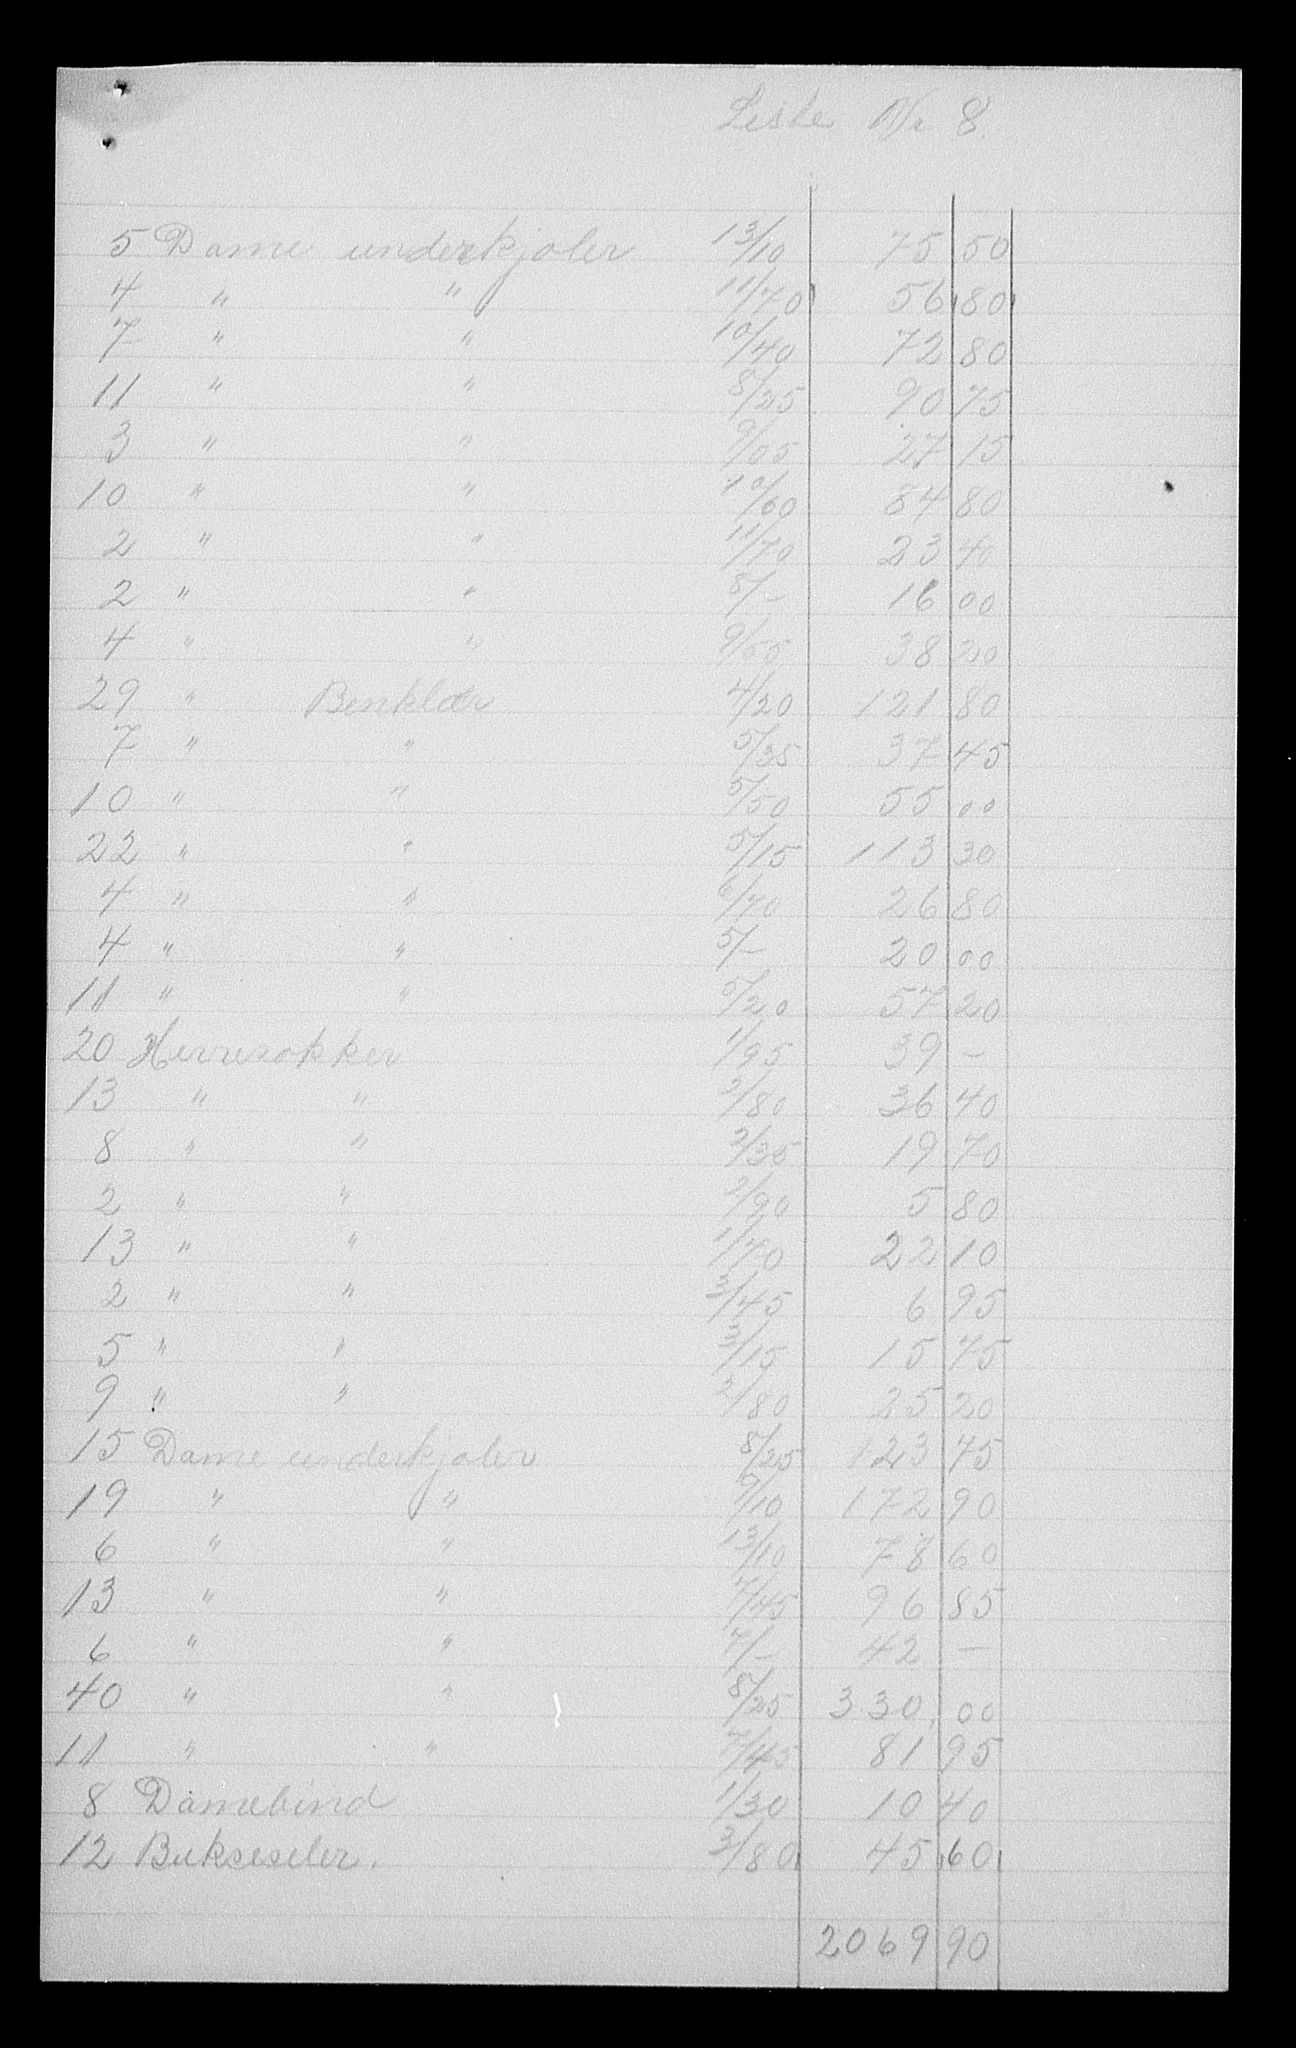 Liste Nr 8.
5 Dame underkjoler 13/10 75 50
4 " " 11/70 56 80
7 " " 10/40 72 80
11 " " 8/25 90 75
3 " " 9/05 27 15
10 " " 10/60 84 80
2 " " 11/70 23 40
2 " " 8/- 16 00
4 " " 9/55 38 20
29 " Benklær 4/20 121 80
7 " " 5/35 37 45
10 " " 5/50 55 00
22 " " 5/15 113 30
4 " " 6/70 26 80
4 " " 5/- 20 00
11 " " 5/20 57 20
20 Herresokker 1/95 39 -
13 " " 2/80 36 40
8 " " 2/35 19 70
2 " " 2/90 5 80
13 " " 1/70 22 10
2 " " 3/45 6 95
5 " " 3/15 15 75
9 " " 2/80 25 20
15 Dame underkjoler 8/25 123 75
19 " " 9/10 172 90
6 " " 13/10 78 60
13 " " 7/45 96 85
6 " " 7/- 42 -
40 " " 8/25 330,00
11 " " 7/45 81 95
8 Damebind 1/30 10 40
12 Bukseseler. 3/80 45 60
2069 90